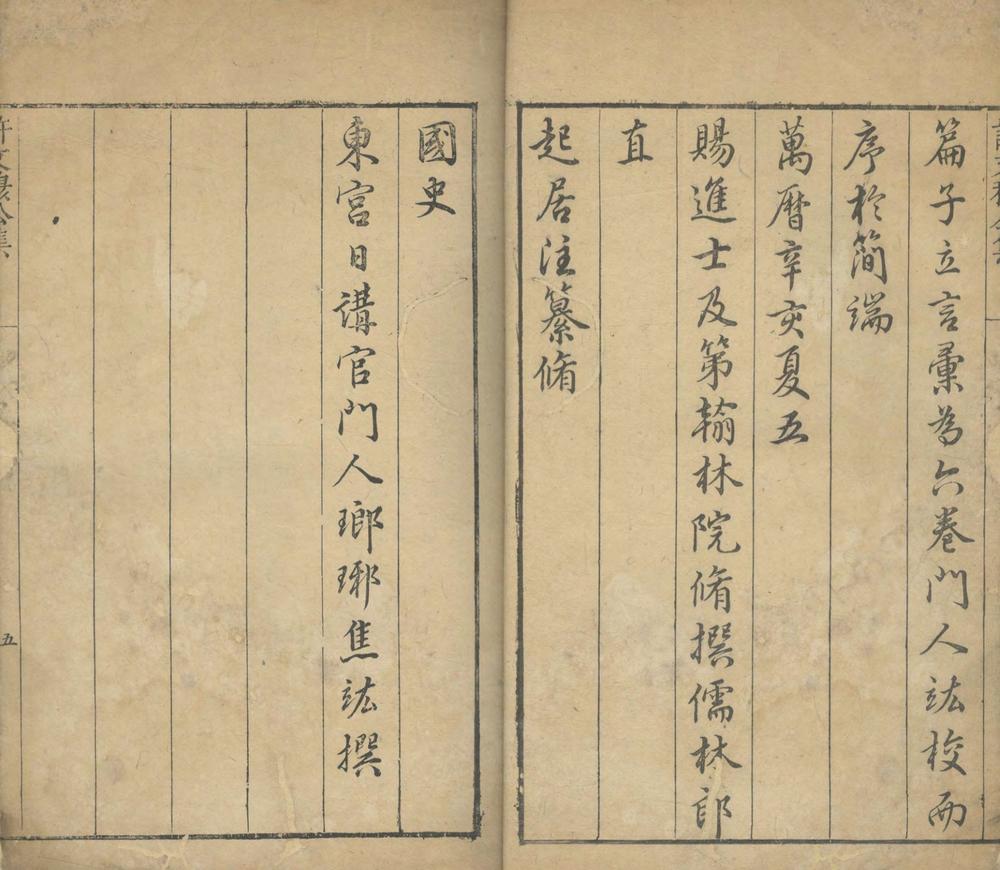 篇子立言彚為六卷門人竑校而
序於簡端
萬曆辛亥夏五
賜進士及第翰林院脩撰儒林郎
直
起居注纂脩
國史
東宮日講官門人瑯琊焦竑撰
五